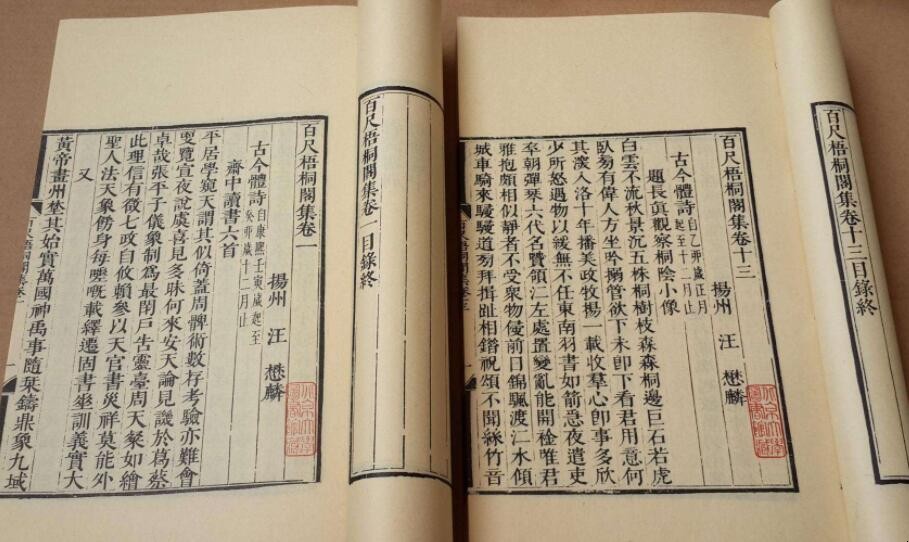 百尺梧桐閣集卷一目錄終
百尺梧桐閣集卷一
揚州 汪 懋麟
古今體詩 自康熙壬寅歲起至
癸卯歲十二月止
齋中讀書六首
平居學窺天謂其似倚蓋周髀術數存考驗亦難會
㪅覽宣夜說虞喜見多昧何來安天論見譏於葛蔡
卓哉張平子儀象制爲最閉戶告靈臺周天粲如繪
此理信有徵七政自攸賴參以天官書災祥莫能外
聖人法天象側身每嘅載繹遷固書坐訓義實大
又
黃帝畫州埜其始實萬國神禹事隨栞鑄鼎象九域
百尺梧桐閣集卷十三目錄終
百尺梧桐閣集卷十三
揚州 汪 懋麟
古今體詩 自乙卯歲正月
起至十二月止
題長眞觀察桐陰小像
白雲不流秋景沉五株桐樹枝森森桐邊巨石若虎
臥旁有偉人方坐吟搦管欲下未卽下看君用意何
其深入洛十年播美政牧揚一載收羣心卽事多欣
少所怒遇物以緩無不任東南羽書如箭急夜遣吏
卒朝彈琹六代名贊領江左處置變亂能開襟唯君
雅抱頗相似靜者不受衆物侵前日錦颿渡江水傾
城車騎來駸駸道旁拜揖趾相錯祝頌不聞絲竹音